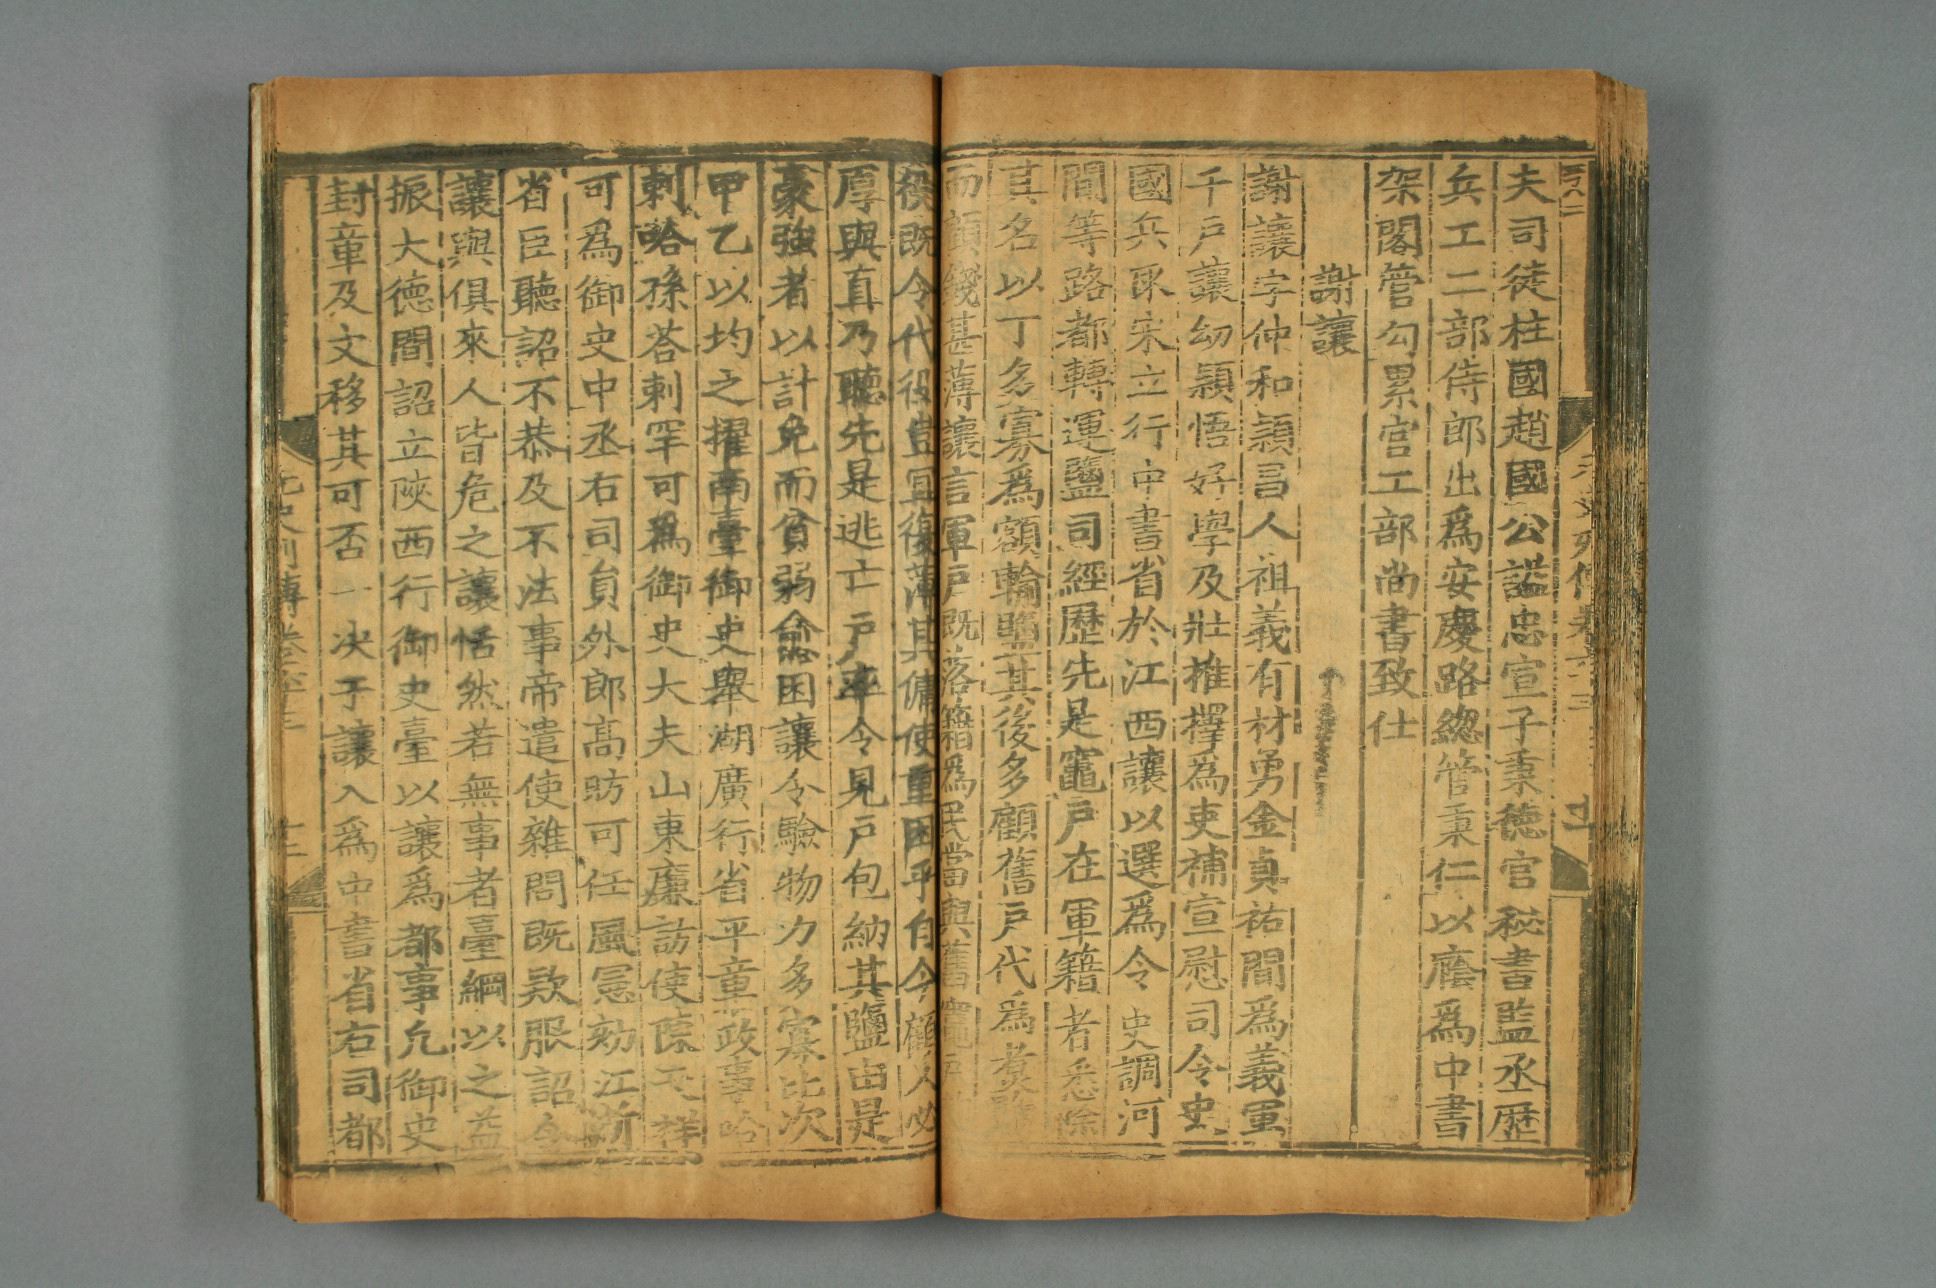 夫司徒柱國趙國公謚忠宣子秉德官秘書監丞歷
兵工二部侍郎出爲安慶路緫管秉仁以廕爲中書
架閣管勾累官工部尚書致仕
謝讓
謝讓字仲和潁昌人祖義有材勇金貞祐間爲義軍
千戶讓幼穎悟好學及壯推擇爲吏補宣慰司令史
國兵取宋立行中書省於江西讓以選爲令史調河
間等路都轉運鹽司經歷先是竈戶在軍籍者悉除
其名以丁多寡爲額輸鹽其後多顧舊戶代爲煮鹽
而顧錢甚薄讓言軍戶既落籍爲民當與舊竈戶
役既令代役豈宜復薄其傭使重困乎自今顧人必
厚與直乃聽先是逃亡戶率令見戶包納其鹽由是
豪強者以計免而貧弱愈困讓令驗物力多寡比次
甲乙以均之擢南臺御史舉湖廣行省平章政事哈
剌哈孫荅剌罕可爲御史大夫山東廉訪使陳天祥
可爲御史中丞右司負外郎高昉可任風憲劾江浙
省臣聽詔不恭及不法事帝遣使雜問既欵服詔令
讓與俱來人皆危之讓恬然若無事者臺綱以之益
振大德間詔立陝西行御史臺以讓爲都事凢御史
封章及文移其可否一决于讓入爲中書省右司都
元史列傳卷六十三
十三